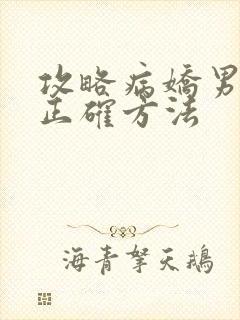 攻略病嬌男
正確方法
海青拏天鵝